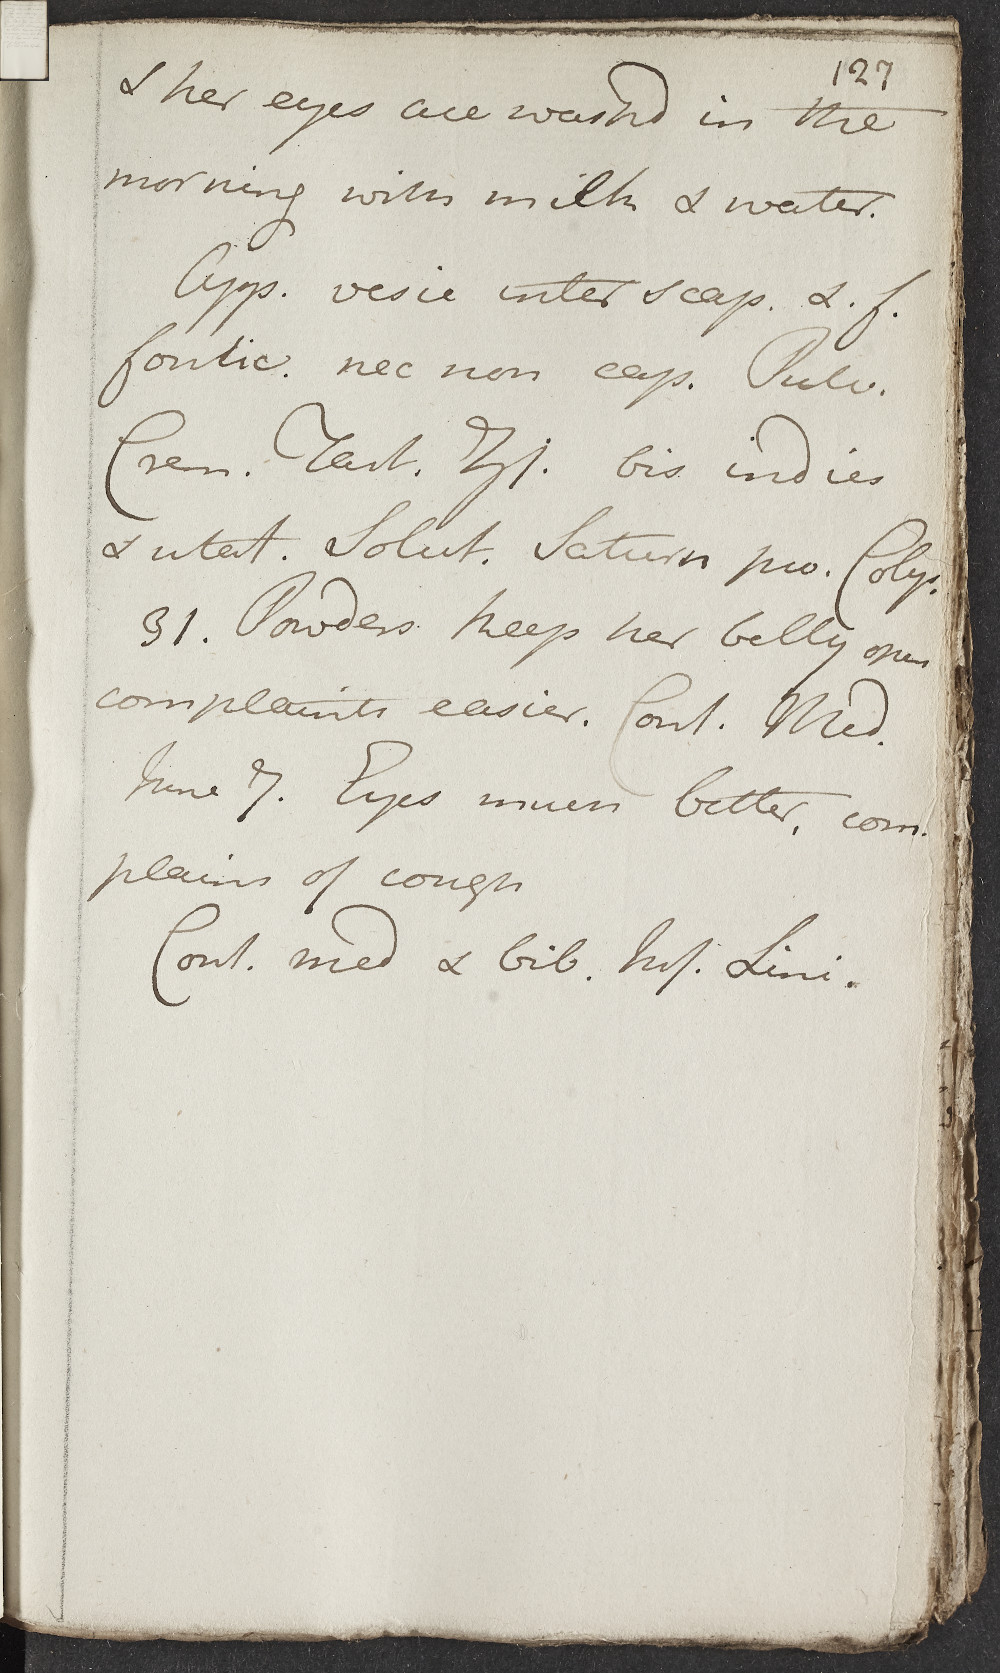 127
& her eyes are washd in the
morning with milk & water.
App. vesic inter scap. & . f.
fontic. nec non cap. Pulv.
Crem. Tart. ʒj. bis indies
& utat. Solut. Saturn pro. Coly.
31. Powders keep her belly open
complaints easier. Cont. Med.
June 7. Eyes much better, com.
plains of cough
Cont. med & bib. Inf. Lini.